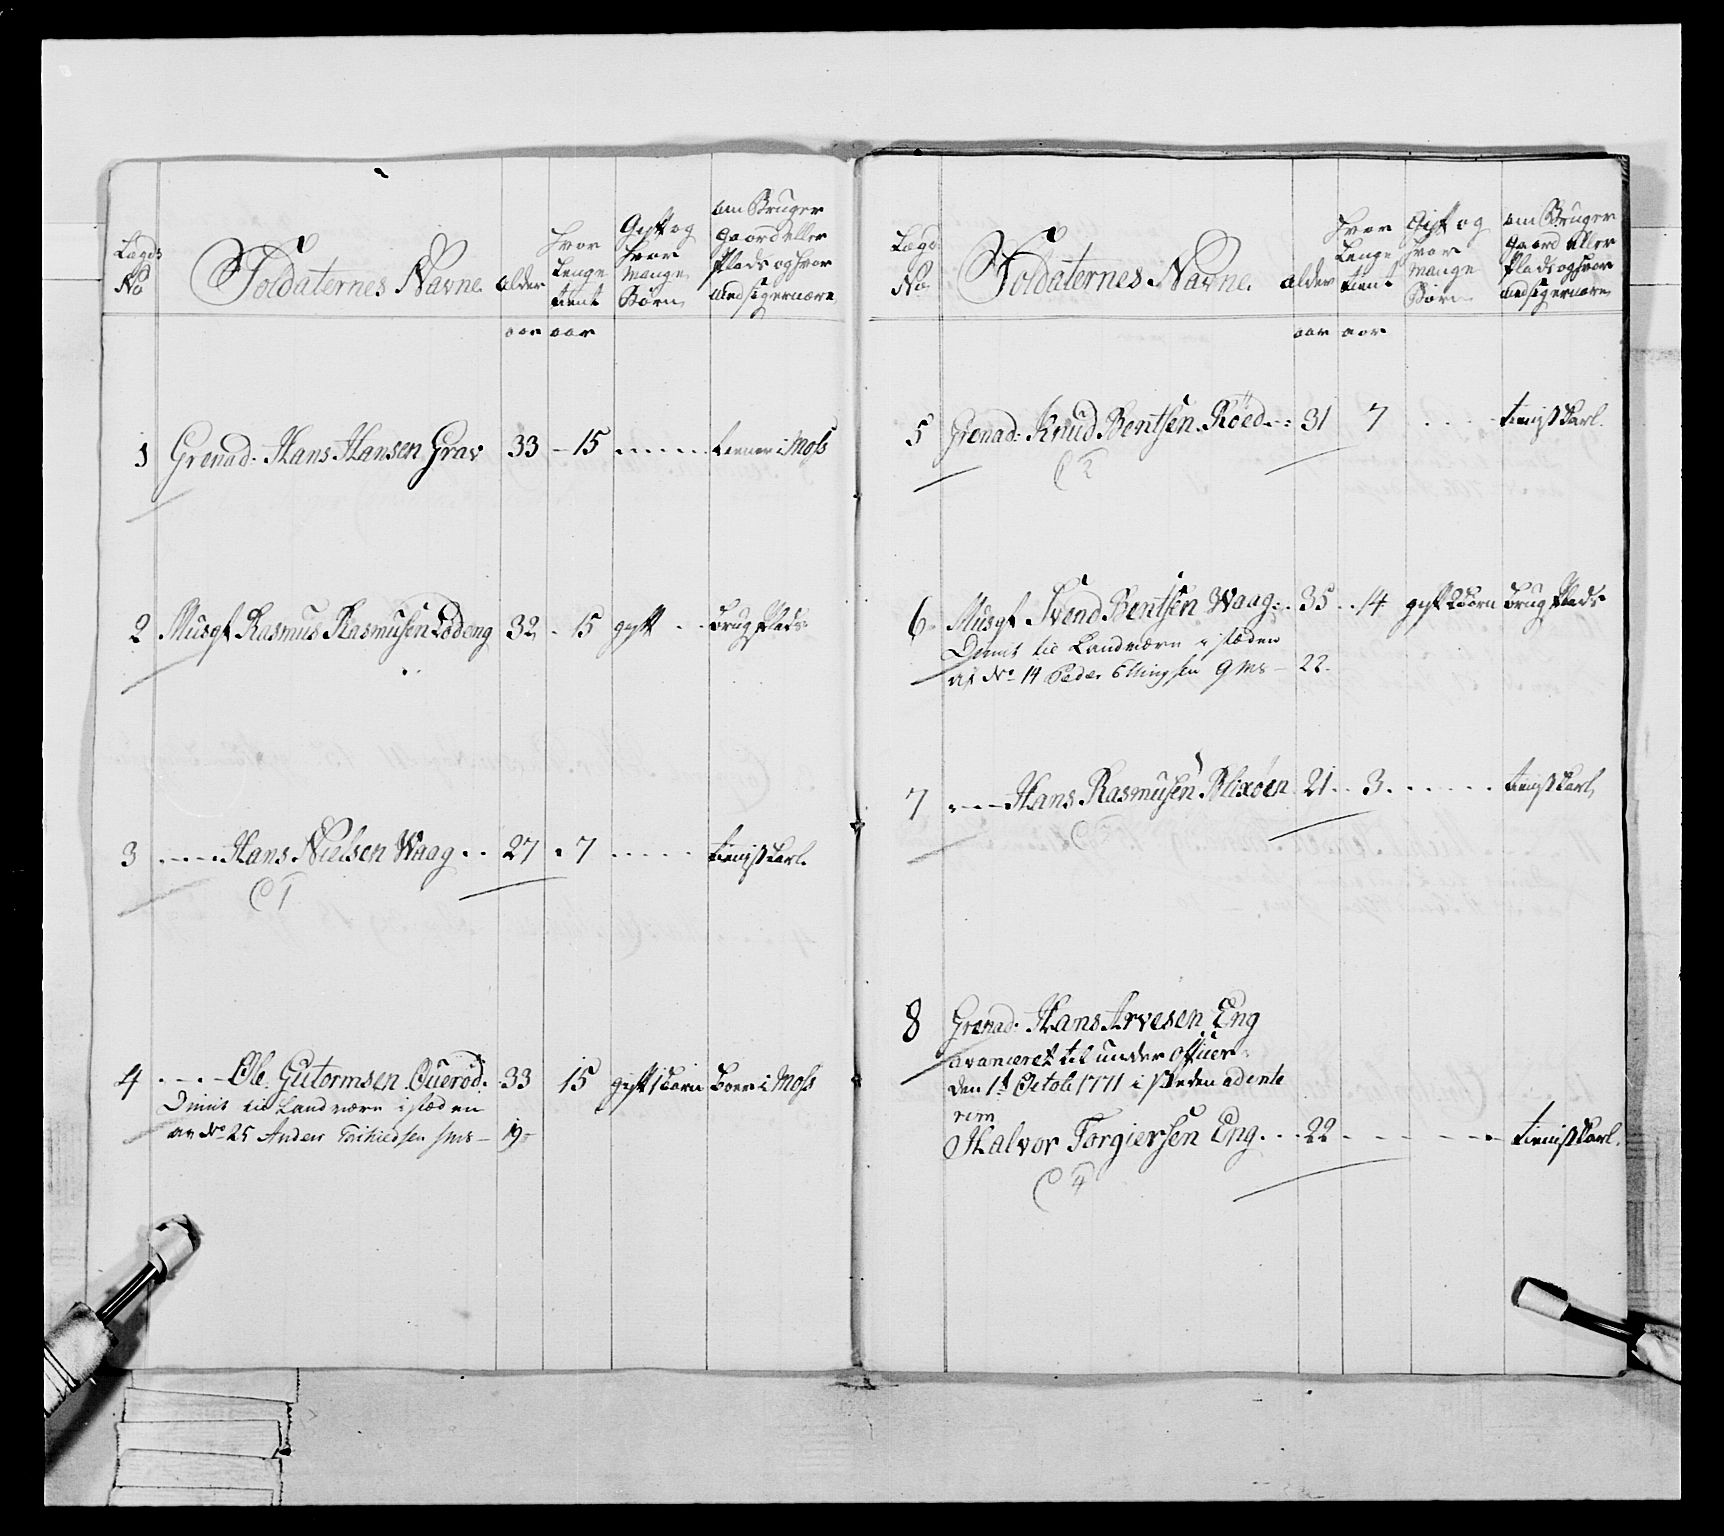 Lægds No
Soldaternes Navne
alder
hvor Lenge tient
Gift og hvor mange Børn
om Bruger Gaord eller Plads og hvor med sig ernære
aar aar
1 Grenad: Hans Hansen Grav 33 - 15 tiener i Moss
2 Musqt Rasmus Rasmusen Lodeng 32 . 15 gift brug Plads
3 Hans Nielsen Waag 27 . 7 tienist karl.
C
4 Ole Gutormsen Ouerød. 33 15 gift 1 barn boer i Moss
Dimit til Landværn i stæden
av No 25 Anders
19
Lægds No
Soldaternes Navne
alder
hvor Lenge tient
Gift og hvor mange Børn
om Bruger gaord eller Plads og hvor med sig ernære
aar aar
5 Grenad: Knud Bentsen Röed 31 7 tienist karl.
C
6 Musqt Svend Bentsen Waag 35 14 gift 2 børn brug Plads
Dimit til Landværn i stæden
af No 14 Peder Ellingsen 22
7 Hans Rasmusen Blixöen 21 3 tienist karl
C
8 Grenad: Hans Arvesen Eng
avanceret til under officer
den 1t Octob 1771 i steden adente
rim
Halvor Torgiersen Eng 22 tienist karl.
C 4